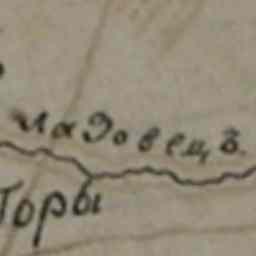 ладовецъ.
Торы